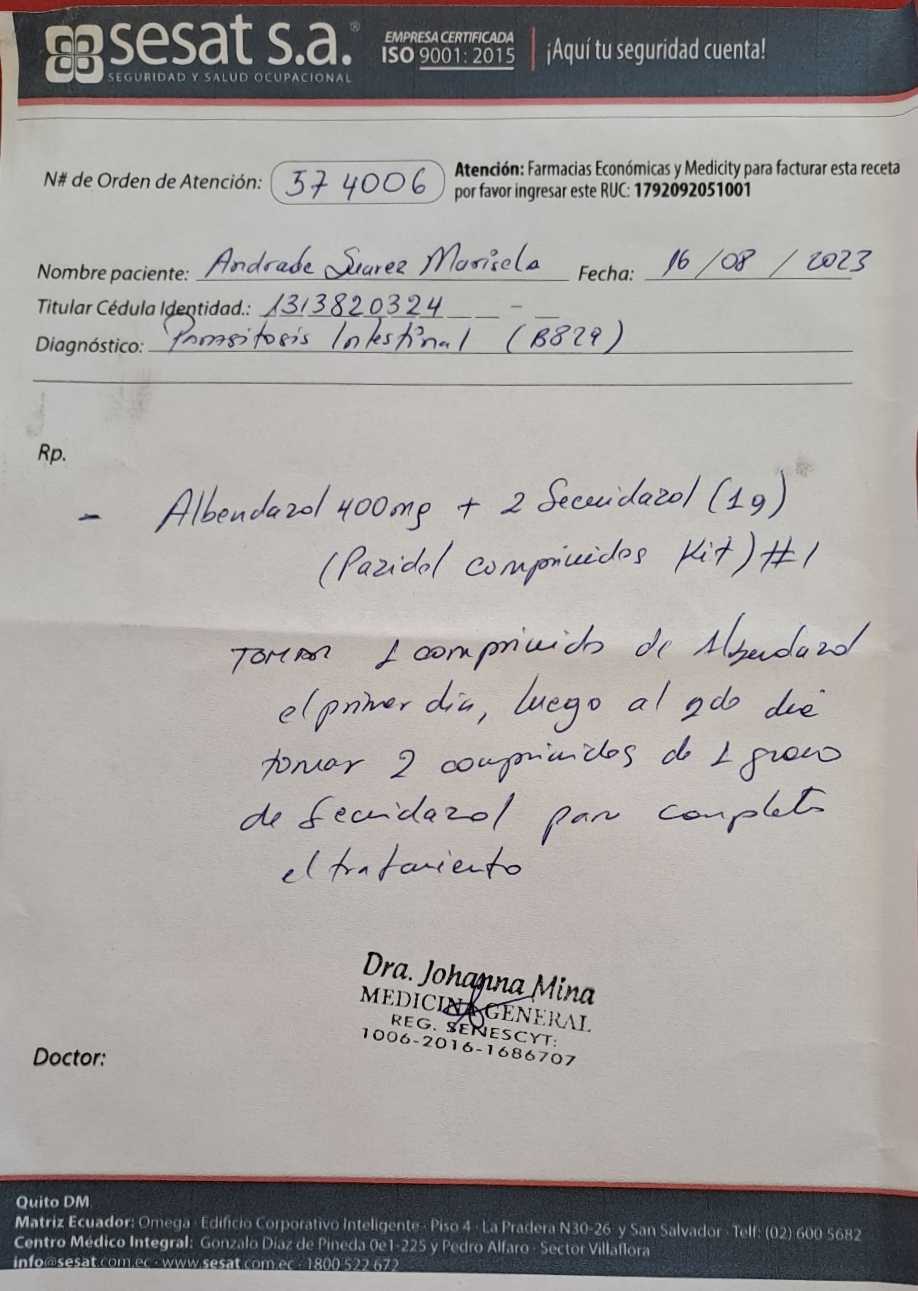 sesat s.a.®
SEGURIDAD Y SALUD OCUPACIONAL
EMPRESA CERTIFICADA
ISO 9001: 2015
¡Aquí tu seguridad cuenta!
N# de Orden de Atención: 574006
Atención: Farmacias Económicas y Medicity para facturar esta receta
por favor ingresar este RUC: 1792092051001
Nombre paciente: Andrade Suarez Marisela Fecha: 16/08/2023
Titular Cédula Identidad.: 1313820324 -
Diagnóstico: Parasitosis Intestinal (B829)
Rp.
- Albendazol 400mg + 2 Secnidazol (1g)
(Pazidol comprimidos Kit) #1
TOMAR 1 comprimido de Albendazol
el primer dia, luego al 2do dia
tomar 2 comprimidos de 1 gramo
de Secnidazol para completar
el tratamiento
Dra. Johanna Mina
MEDICINA GENERAL
REG. SENESCYT:
1006-2016-1686707
Doctor:
Quito DM
Matriz Ecuador: Omega · Edificio Corporativo Inteligente · Piso 4 · La Pradera N30-26 y San Salvador · Telf: (02) 600 5682
Centro Médico Integral: Gonzalo Díaz de Pineda 0e1-225 y Pedro Alfaro · Sector Villaflora
info@sesat.com.ec · www.sesat.com.ec · 1800 522 672